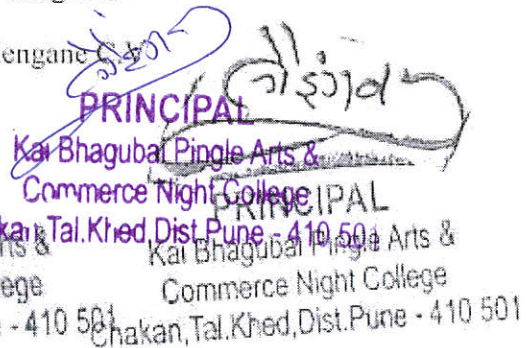 engane C.V
PRINCIPAL
Kai Bhagubai Pingle Arts &
Commerce Night College
Tal.Khed,Dist.Pune - 410 501
PRINCIPAL
Kai Bhagubai Pingle Arts &
Commerce Night College
Chakan,Tal.Khed,Dist.Pune - 410 501
ege
- 410 501